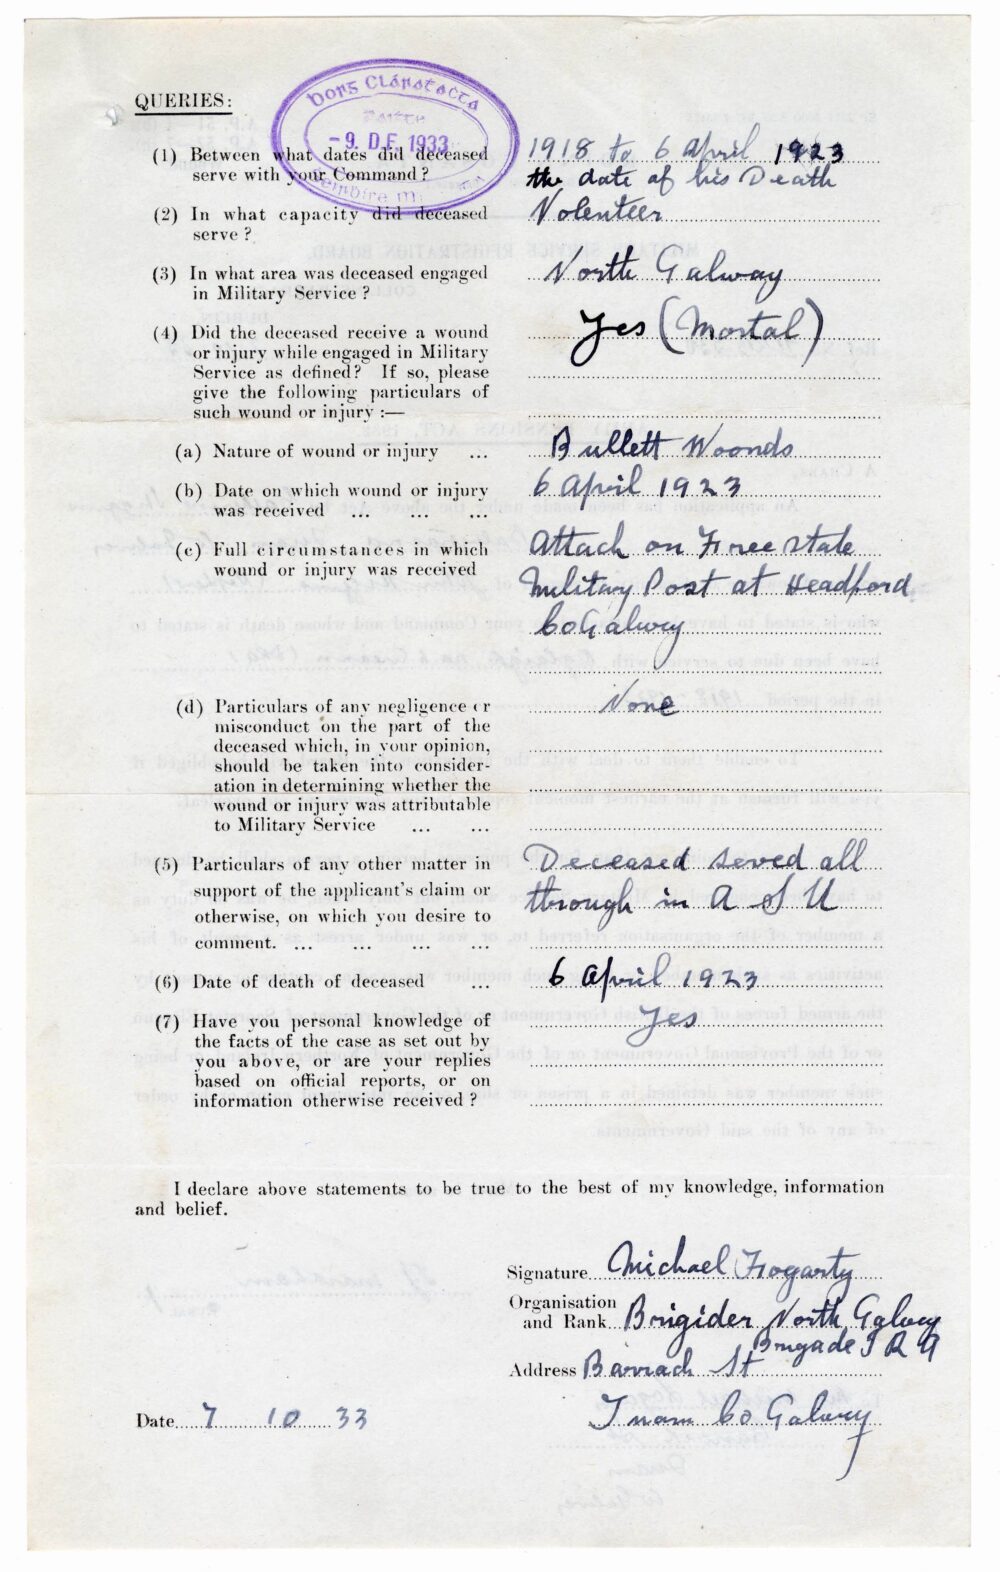 QUERIES:
- 9. DE. 1933
(1) Between what dates did deceased
serve with your Command?
1918 to 6 April 1923
the date of his Death
(2) In what capacity did deceased
serve?
Volenteer
(3) In what area was deceased engaged
in Military Service?
North Galway
(4) Did the deceased receive a wound
or injury while engaged in Military
Service as defined? If so, please
give the following particulars of
such wound or injury :—
Yes (Mortal)
(a) Nature of wound or injury ...
Bullett Woonds
(b) Date on which wound or injury
was received ... ... ...
6 April 1923
(c) Full circumstances in which
wound or injury was received
Attach on Free state
Military Post at Headford
Co Galway
(d) Particulars of any negligence or
misconduct on the part of the
deceased which, in your opinion,
should be taken into consider-
ation in determining whether the
wound or injury was attributable
to Military Service ... ...
None
(5) Particulars of any other matter in
support of the applicant's claim or
otherwise, on which you desire to
comment. ... ... ... ...
Deceased seved all
through in A S U
(6) Date of death of deceased ...
6 April 1923
(7) Have you personal knowledge of
the facts of the case as set out by
you above, or are your replies
based on official reports, or on
information otherwise received?
Yes
I declare above statements to be true to the best of my knowledge, information
and belief.
Signature Michael Fogarty
Organisation
and Rank Brigider North Galway
Brigade I R A
Address Barrach St
Tuam Co Galway
Date 7 10 33